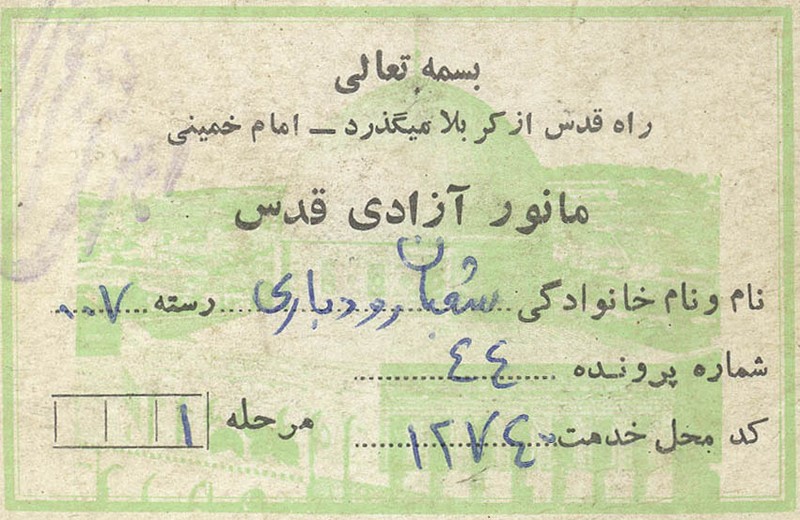 بسمه تعالی
راه قدس از کربلا میگذرد ــ امام خمینی
مانور آزادی قدس
نام و نام خانوادگی شعبان رودباری رسته ۰۰۷
شماره پرونده ٤٤
کد محل خدمت ۱۲۷٤۰
مرحله ۱